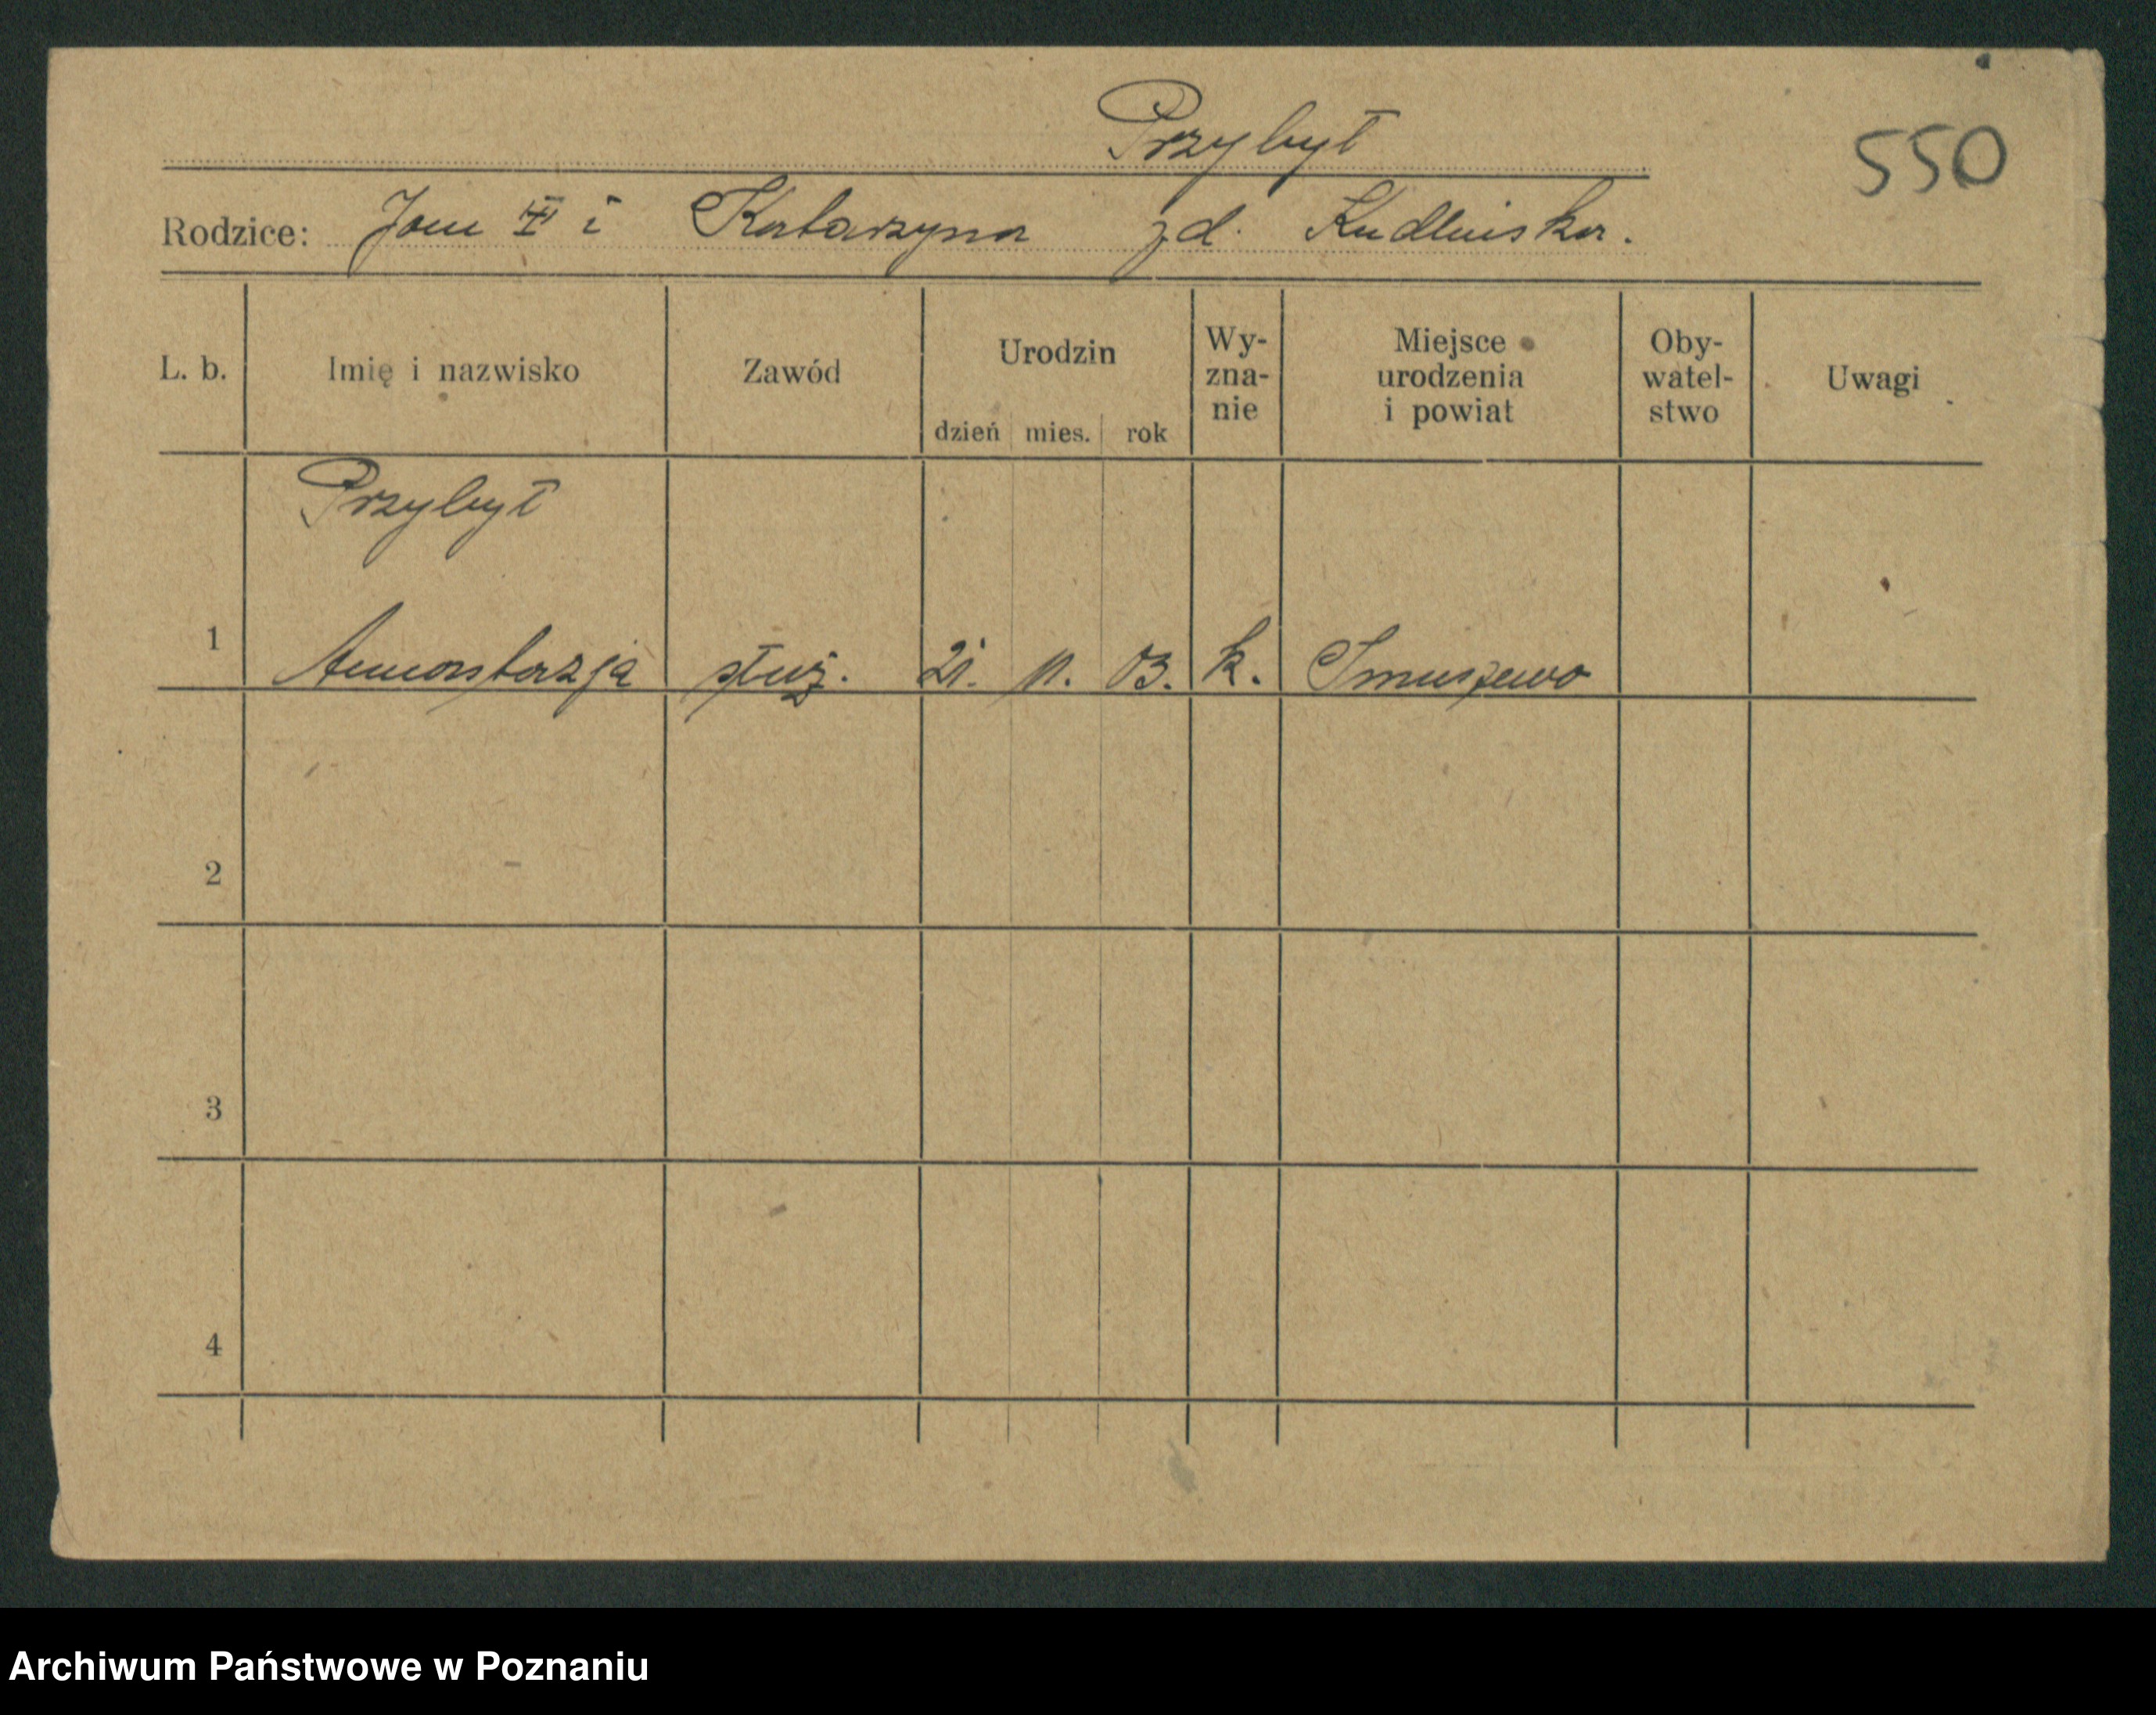 Przybył
550
Rodzice: Jan II i Katarzyna zd. Kudlińska.
L. b. Imię i nazwisko Zawód Urodzin dzień mies. rok Wy-zna-nie Miejsce urodzenia i powiat Oby-watel-stwo Uwagi
Przybył
1 Anastazja służ. 21. 11. 03. k.
2
3
4
Archiwum Państwowe w Poznaniu